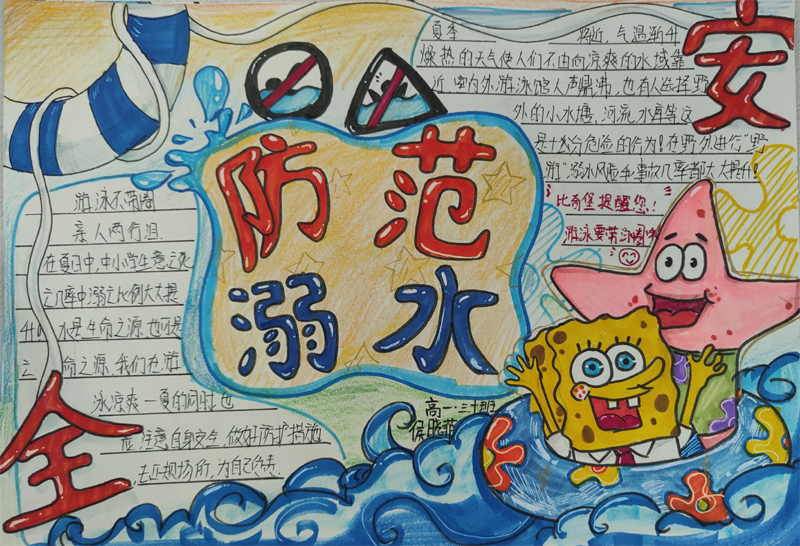 防范
溺水
安
全
夏季 将近,气温渐升
燥热的天气使人们不由向凉爽的水域靠
近,室内外游泳馆人声鼎沸,也有人选择野
外的小水塘、河流、水库等,这
是十分危险的行为!在野外进行“野
游”溺水风险和事故几率都大大提升!
比奇堡提醒您!
游泳要带泳圈
游泳不带圈
亲人两行泪
在夏日中,中小学生意外死
之几率中溺之比例大大提
升,水是生命之源,也可是
命之源,我们在游
泳凉爽一夏的同时,也
应注意自身安全,做好防护措施
去正规场所,为自己负责.
高一·三十班